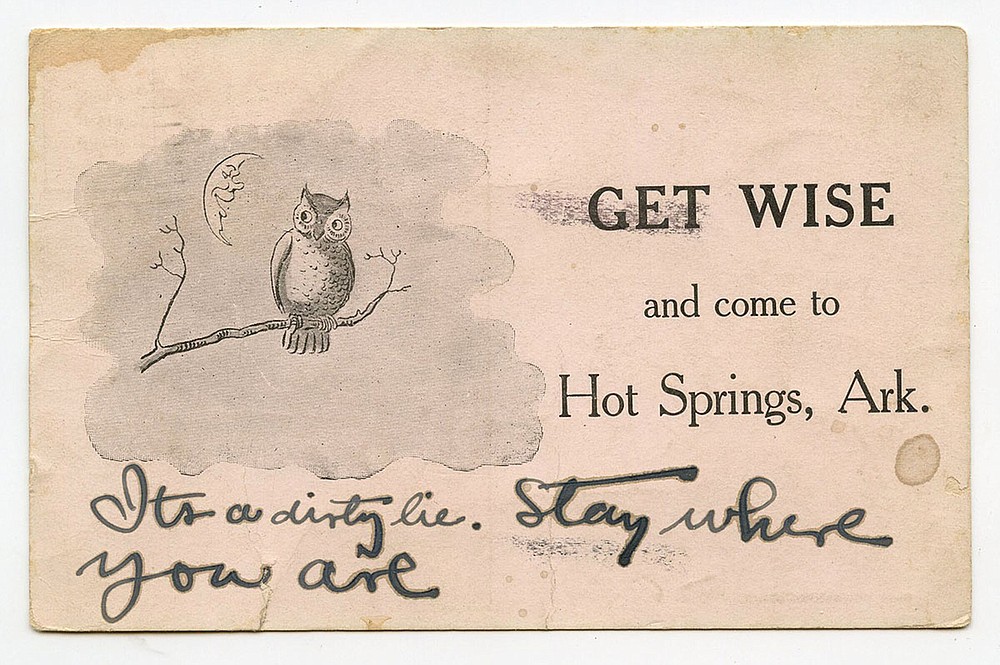 GET WISE
and come to
Hot Springs, Ark.
Its a dirty lie. Stay where
you are